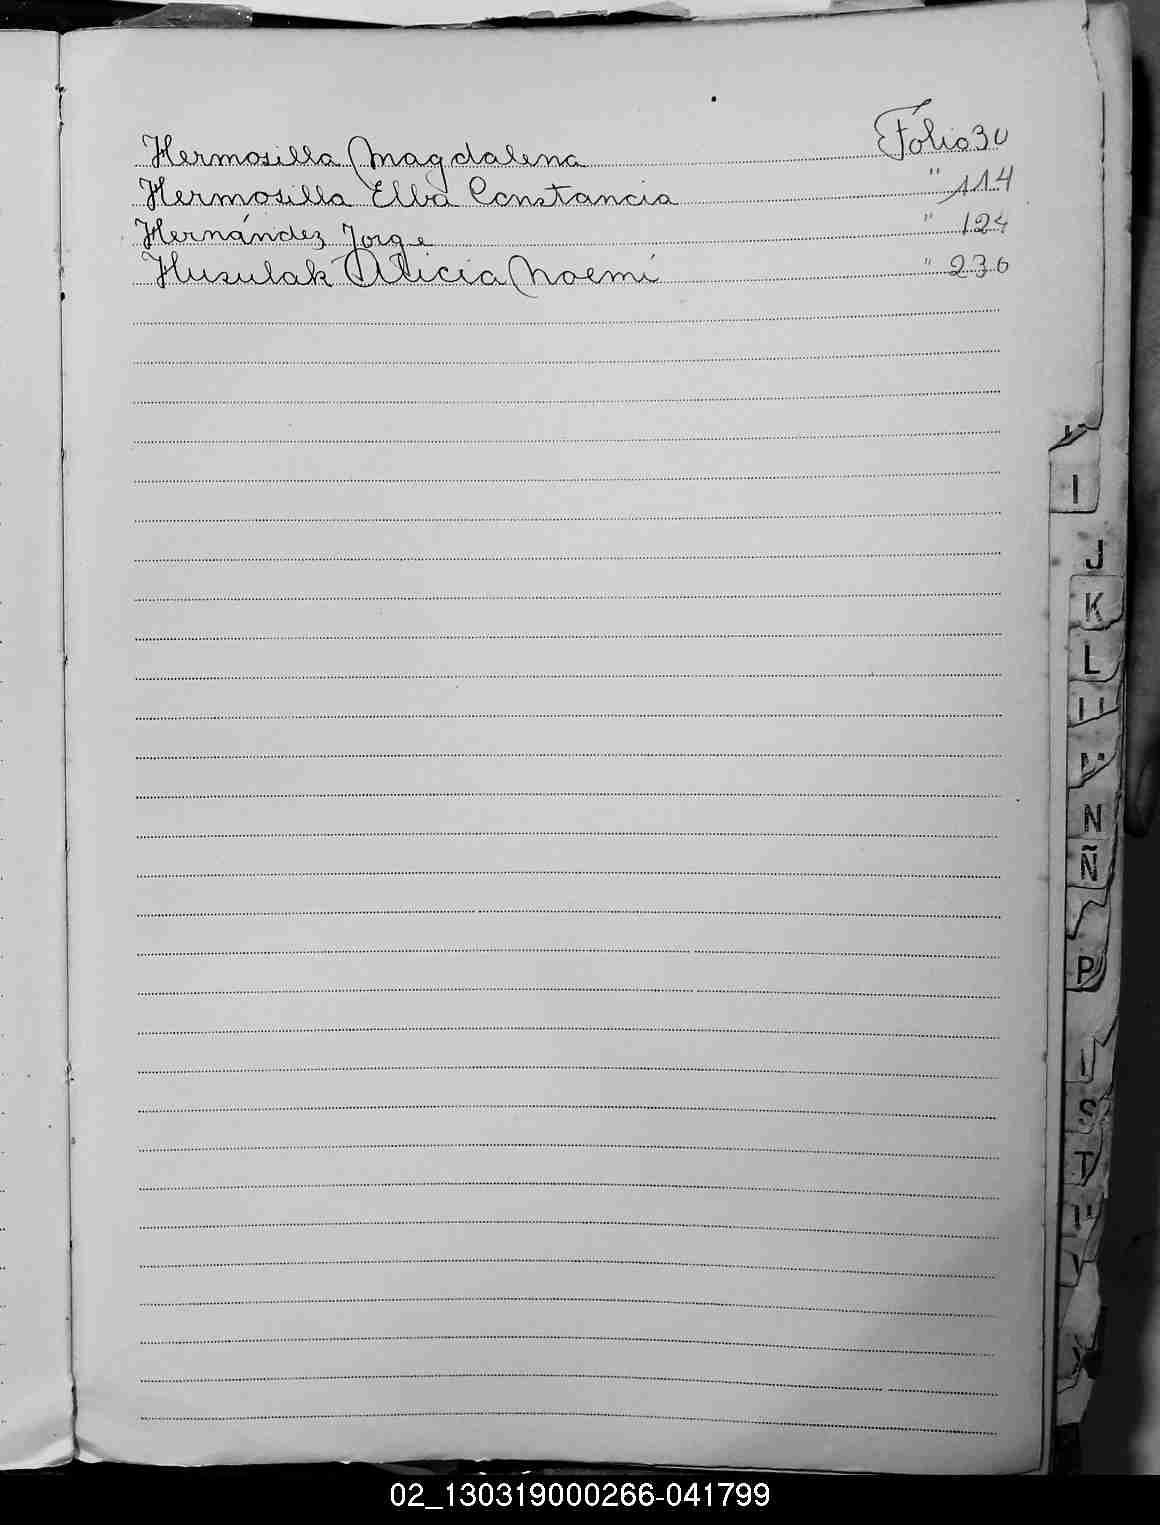 Hermosilla Magdalena Folio 30
Hermosilla Elba Constancia " 114
Hernández Jorge " 124
Husulak Alicia Noemí " 236
I
J
K
L
N
Ñ
P
S
T
02_130319000266-041799